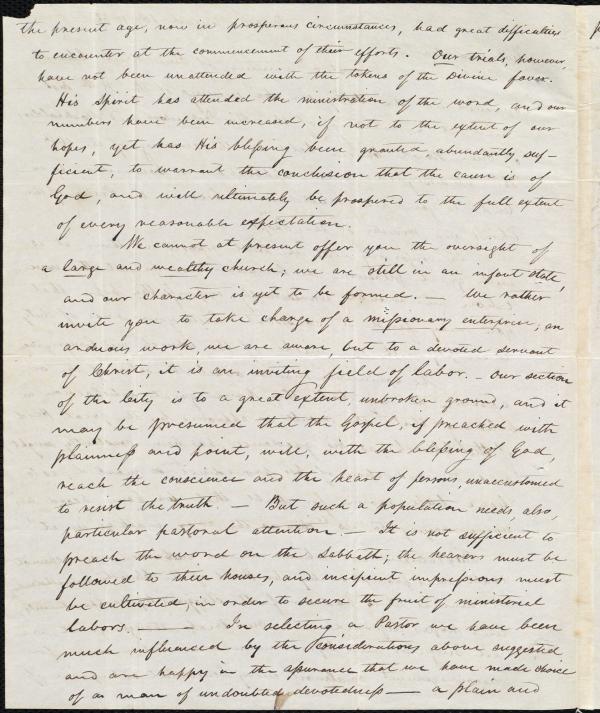 the present age, now in prosperous circumstances, had great difficulties
to encounter at the commencement of their efforts. Our trials, however,
have not been unattended with the tokens of the Divine favor.
His Spirit has attended the ministration of the word, and our
numbers have been increased, if not to the extent of our
hopes, yet has His blessing been granted, abundantly suf-
ficient, to warrant the conclusion that the cause is of
God, and will ultimately be prospered to the full extent
of every reasonable expectation.
We cannot at present offer you the oversight of
a large and wealthy church; we are still in an infant state,
and our character is yet to be formed. — We rather
invite you to take charge of a missionary enterprise, an
arduous work, we are aware, but to a devoted servant
of Christ, it is an inviting field of labor. – Our section
of the City is to a great extent, unbroken ground, and it
may be presumed that the Gospel, if preached with
plainness and point, will, with the blessing of God,
reach the conscience and the heart of persons, unaccustomed
to resist the truth. — But such a population needs, also,
particular pastoral attention. — It is not sufficient to
preach the word on the Sabbath; the hearers must be
followed to their houses, and incipient impressions must
be cultivated, in order to secure the fruit of ministerial
labors. —— In selecting a Pastor we have been
much influenced by the considerations above suggested
and are happy in the assurance that we have made choice
of a man of undoubted devotedness — a plain and